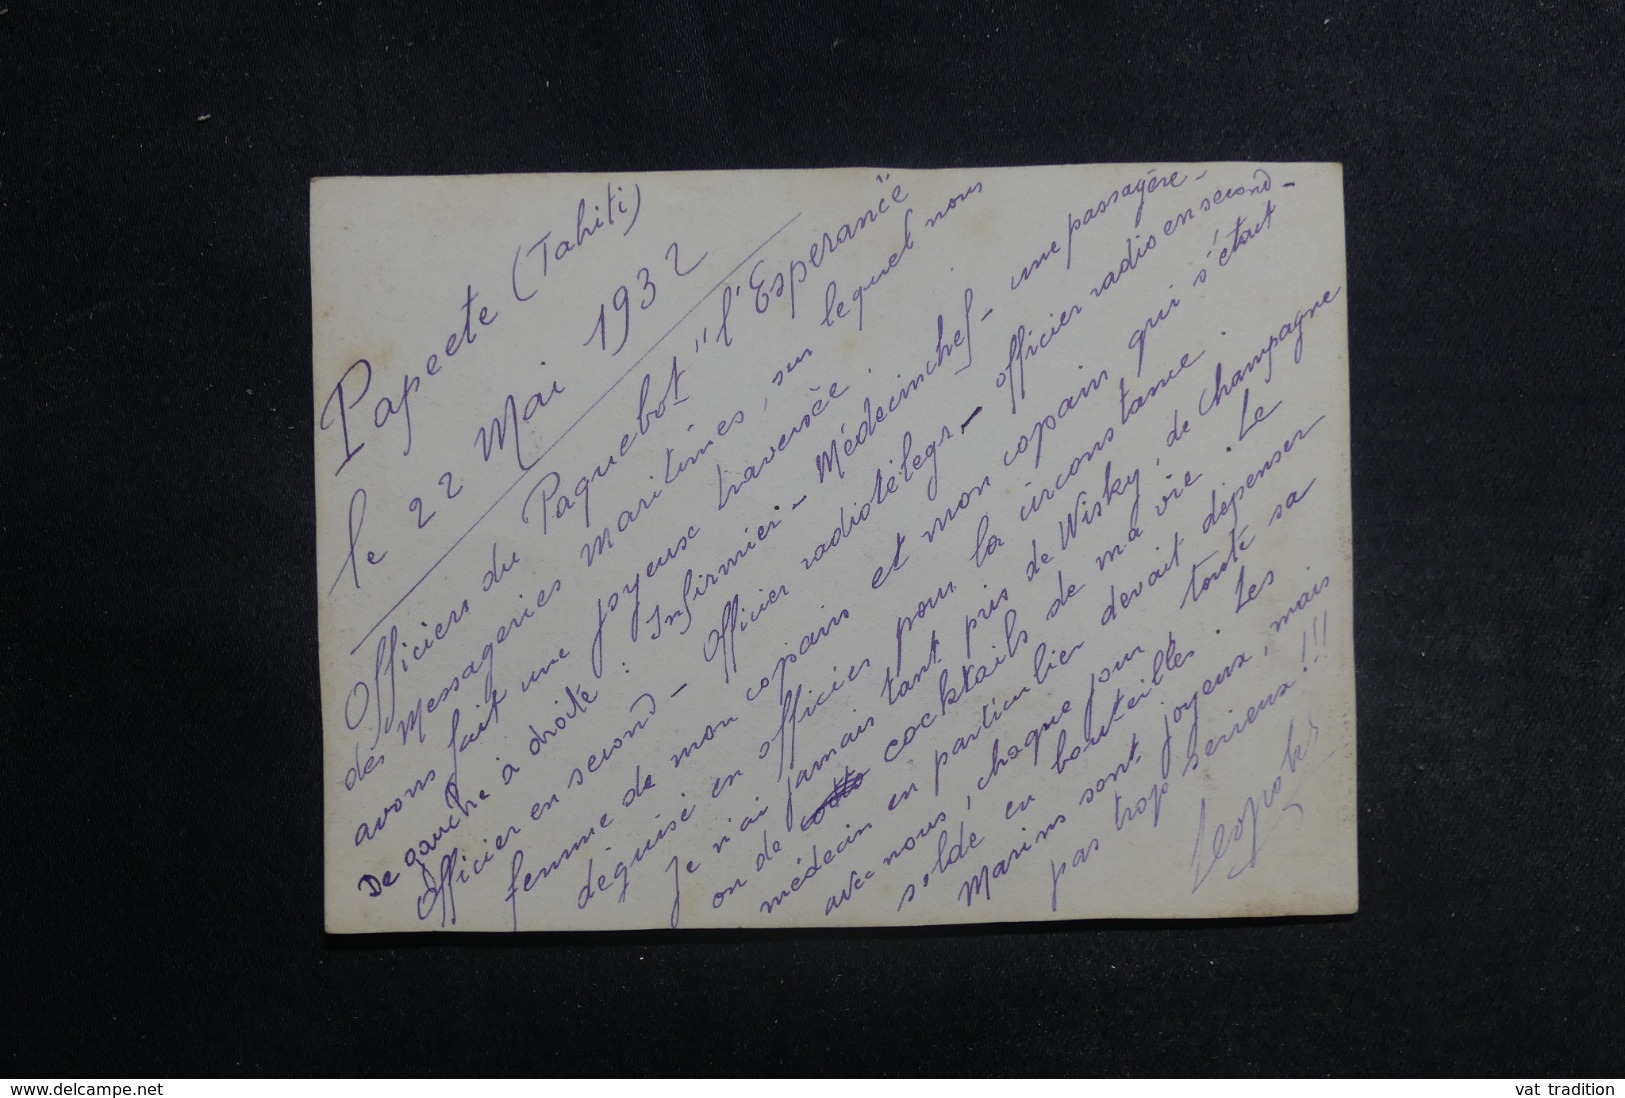 Papeete (Tahiti)
le 22 Mai 1932
Officiers du Paquebot "l'Esperance
des Messageries Maritimes, sur lequel nous
avons fait une joyeuse traversée.
De gauche à droite : Infirmier - Médecin chef - une passagère -
Officier en second - Officier radiotélegr. - Officier radio en second -
femme de mon copain et mon copain qui s'était
déguisé en officier pour la circonstance.
Je n'ai jamais tant pris de Wisky, de Champagne
on de cocktails de ma vie. Le
médecin en particulier devait dépenser
avec nous, chaque jour toute sa
solde en bouteilles. Les
Marins sont joyeux, mais
pas trop serieux !!!
www.delcampe.net
vat tradition